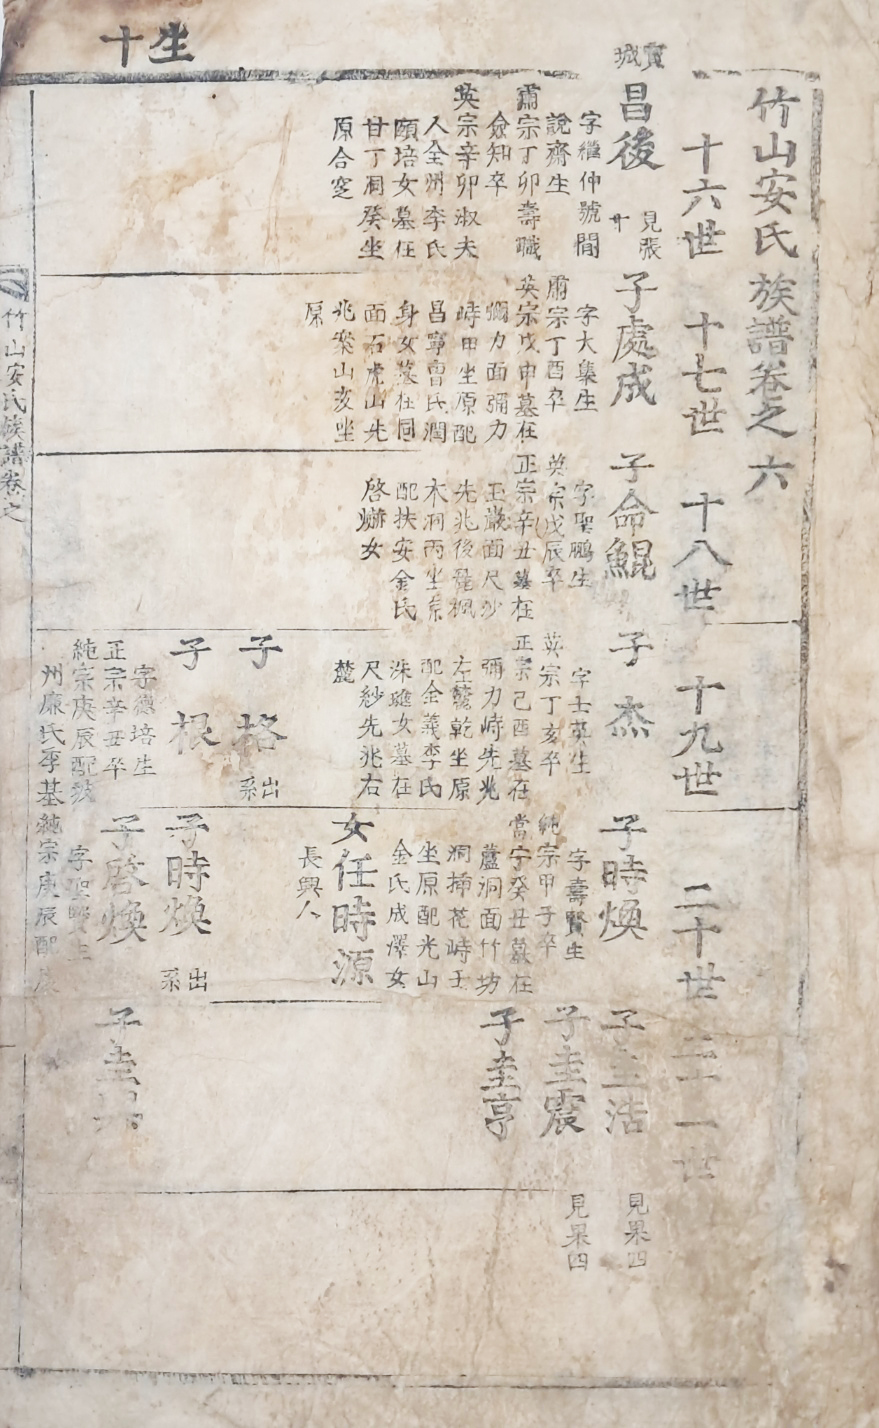 生十
竹山安氏族譜卷之六
十六世
十七世
十八世
十九世
二十世
二十一世
寶城
昌後
見張
廿
字繼仲號閒
說齋生
肅宗丁卯壽職
僉知卒
英宗辛卯淑夫
人全州李氏
頤培女墓任
甘丁洞癸坐
原合窆
子處成
字大集生
肅宗丁酉卒
英宗戊申墓在
彌力面彌力
峙甲坐原配
昌寧曺氏潤
身女墓在同
面石虎山先
兆案山亥坐
原
子命鯤
字聖鵬生
英宗戊辰卒
正宗辛丑墓在
玉巖面尺沙
先兆後麓楓
木洞丙坐原
配扶安金氏
啓女
子杰
字士英生
英宗丁亥卒
正宗己酉墓在
彌力峙先兆
左麓乾坐原
配全義李氏
洙璡女墓在
尺紗先兆右
麓
子格
出系
子根
字德培生
正宗辛丑卒
純宗庚辰配坡
州廉氏季基
子時煥
字壽賢生
純宗甲子卒
當宁癸丑墓在
蘆洞面竹坊
洞揷花峙壬
坐原配光山
金氏成澤女
女任時源
長興人
子時煥
出系
子啓煥
字聖賢生
純宗庚辰配
子圭浩
見果四
子圭震
見果四
子圭亨
子圭
竹山安氏族譜卷之